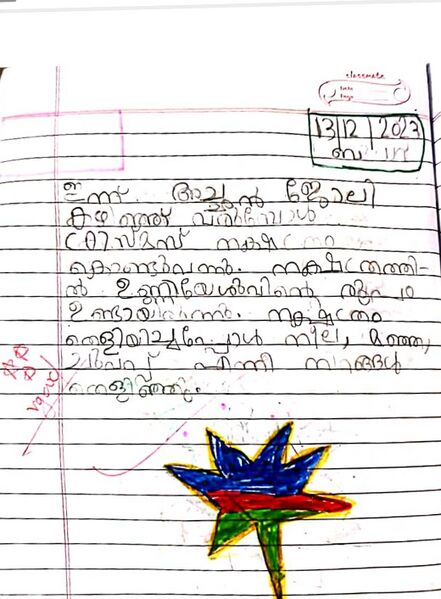 classmate
Date
Page
13/12/2023
ബുധൻ
ഇന്ന് അച്ഛൻ ജോലി
കഴിഞ്ഞ് വരുമ്പോൾ
ക്രിസ്മസ് നക്ഷത്രം
കൊണ്ടുവന്നു. നക്ഷത്രത്തി-
ൽ ഉണ്ണിയേശുവിന്റെ രൂപം
ഉണ്ടായിരുന്നു. നക്ഷത്രം
തെളിയിച്ചപ്പോൾ നീല, മഞ്ഞ,
ചുവപ്പ് എന്നീ നിറങ്ങൾ
തെളിഞ്ഞു.